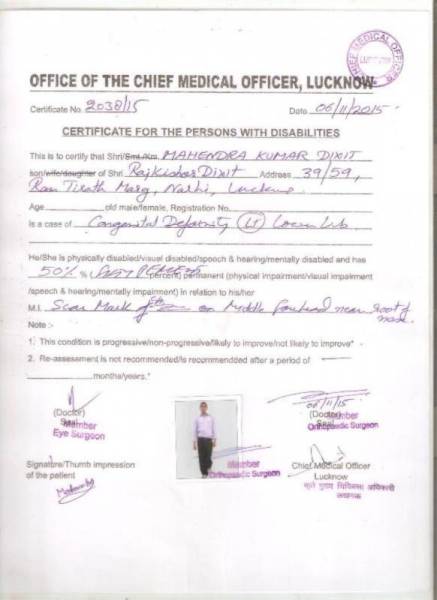 CHIEF MEDICAL OFFICER
OFFICE OF THE CHIEF MEDICAL OFFICER, LUCKNOW
Certificate No. 2038/15 Date 06/11/2015
CERTIFICATE FOR THE PERSONS WITH DISABILITIES
This is to certify that Shri/Smt./Km. MAHENDRA KUMAR DIXIT
son/wife/daughter of Shri RajKishor Dixit Address 39/59,
Ram Tirath Marg, Narhi, Lucknow
Age old male/female, Registration No.
is a case of Congenital Deformity (Lt) Lower Limb
He/She is physically disabled/visual disabled/speech & hearing/mentally disabled and has
50% percent) permanent (physical impairment/visual impairment
/speech & hearing/mentally impairment) in relation to his/her
M.I. Scar Mark on Middle forehead near root of
nose.
Note :-
1. This condition is progressive/non-progressive/likely to improve/not likely to improve*
2. Re-assessment is not recommended/is recommendded after a period of
months/years.*
(Doctor)
Seal
Member
Eye Surgeon
06/11/15
(Doctor)
Seal
Member
Orthopaedic Surgeon
Member
Orthopaedic Surgeon
Signature/Thumb impression
of the patient
Chief Medical Officer
Lucknow
मुख्य चिकित्सा अधिकारी
लखनऊ